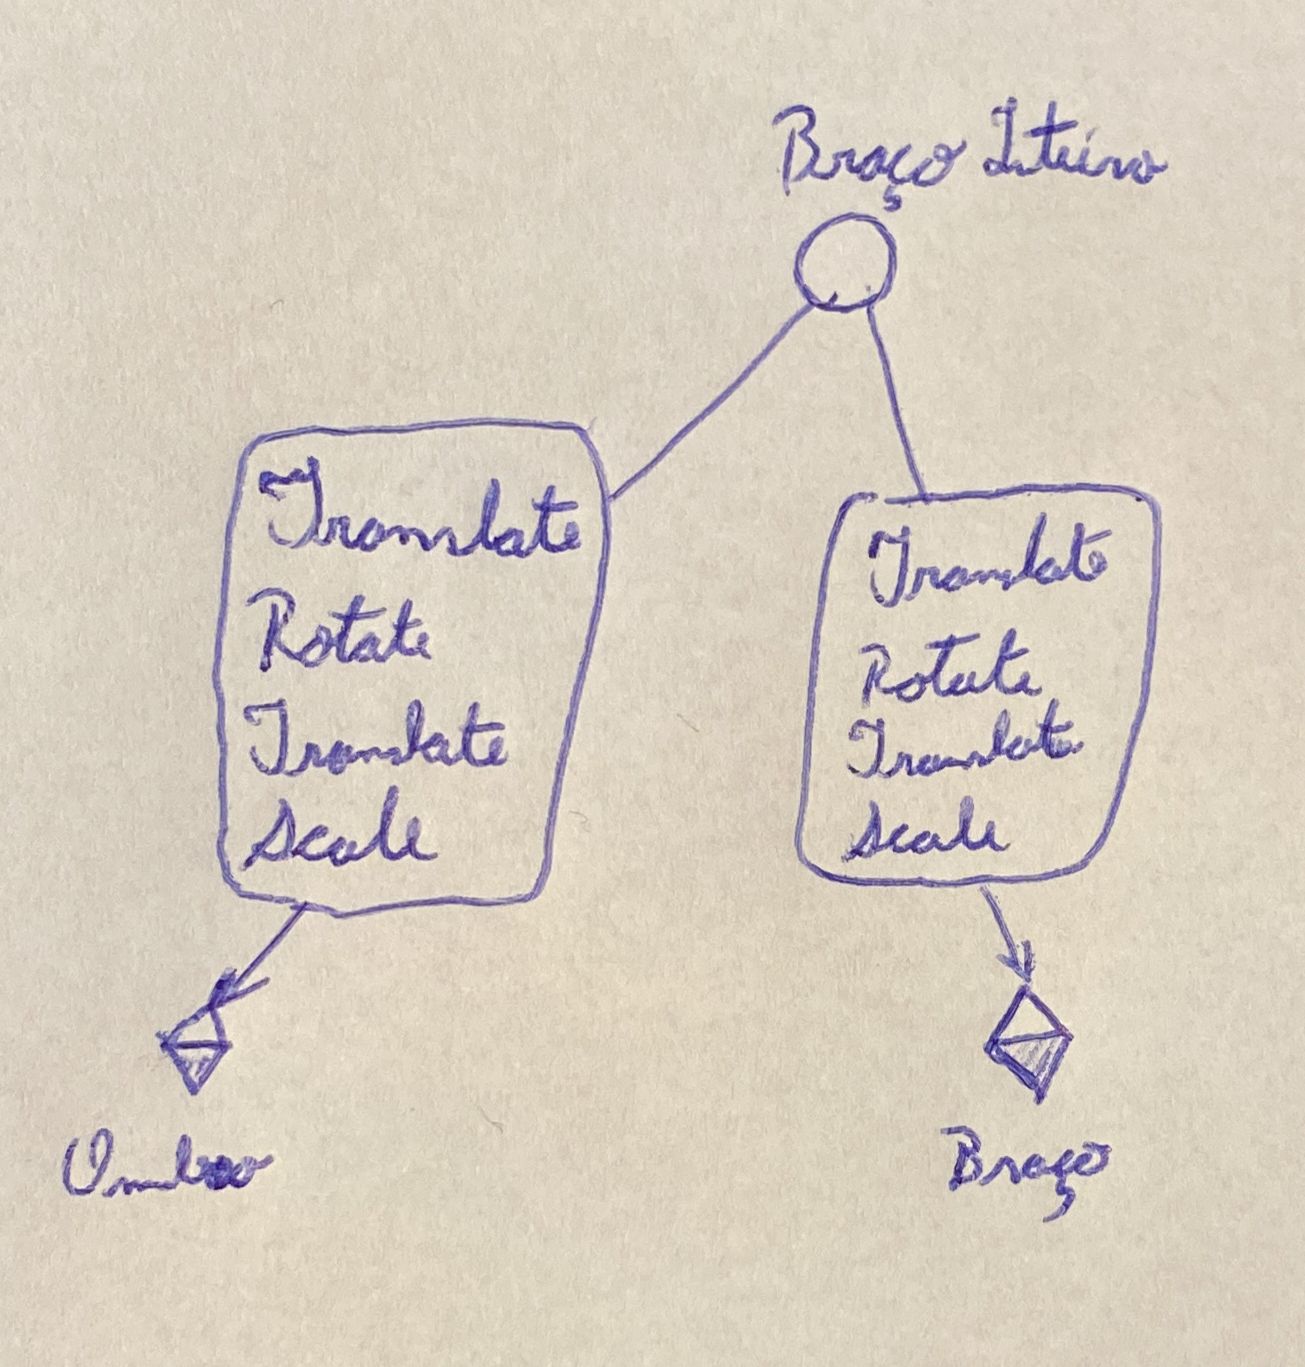 Braço Inteiro
Translate
Rotate
Translate
Scale
Translate
Rotate
Translate
Scale
Ombro
Braço